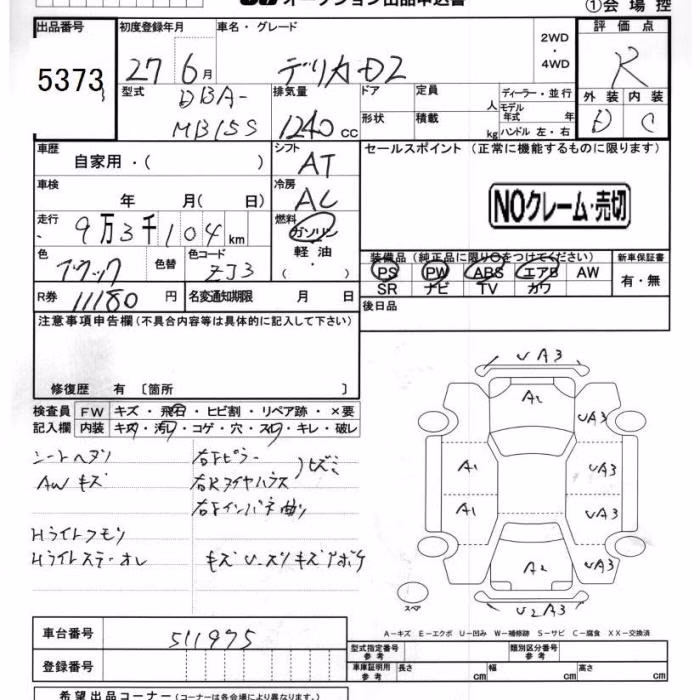 オークション出品申込書
①会場控
出品番号 初度登録年月 車名・グレード 2WD・4WD 評価点
5373 27年6月 デリカD2 R
型式 DBA-MB15S 排気量 1240cc ドア 定員 人 ディーラー・並行 外装 内装
形状 積載 kg モデル年式 年式 ハンドル 左・右 D C
車歴 自家用・( ) シフト AT セールスポイント (正常に機能するものに限ります)
車検 年 月( 日) 冷房 AC
NOクレーム・売切
走行 9万3千104km 燃料 ガソリン・軽油・( )
色 色替 色コード ZJ3
装備品 (純正品に限り○をつけてください) 新車保証書
PS PW ABS エアB AW 有・無
SR ナビ TV カワ
R券 11180円 名変通知期限 月 日
後日品
注意事項申告欄(不具合内容等は具体的に記入して下さい)
修復歴 有 〔箇所 〕
検査員 FW キズ・飛石・ヒビ割・リペア跡・×要
記入欄 内装 キズ・汚レ・コゲ・穴・スレ・キレ・破レ
シートヘタリ 右Fピラー
AWキズ 右Rタイヤハウス )ヒズミ
右Fインパネ曲り
Hライトクモリ
UA3
A2
UA3
A1 UA3
A1 UA3
A2 UA3
U2A3
スペア
A-キズ E-エクボ U-凹み W-補修跡 S-サビ C-腐食 XX-交換済
車台番号 511975
型式指定番号 参考 類別区分番号 参考
登録番号
車庫証明用 参考 長さ cm 幅 cm 高さ cm
希望出品コーナー(コーナーは各会場により異なります。)